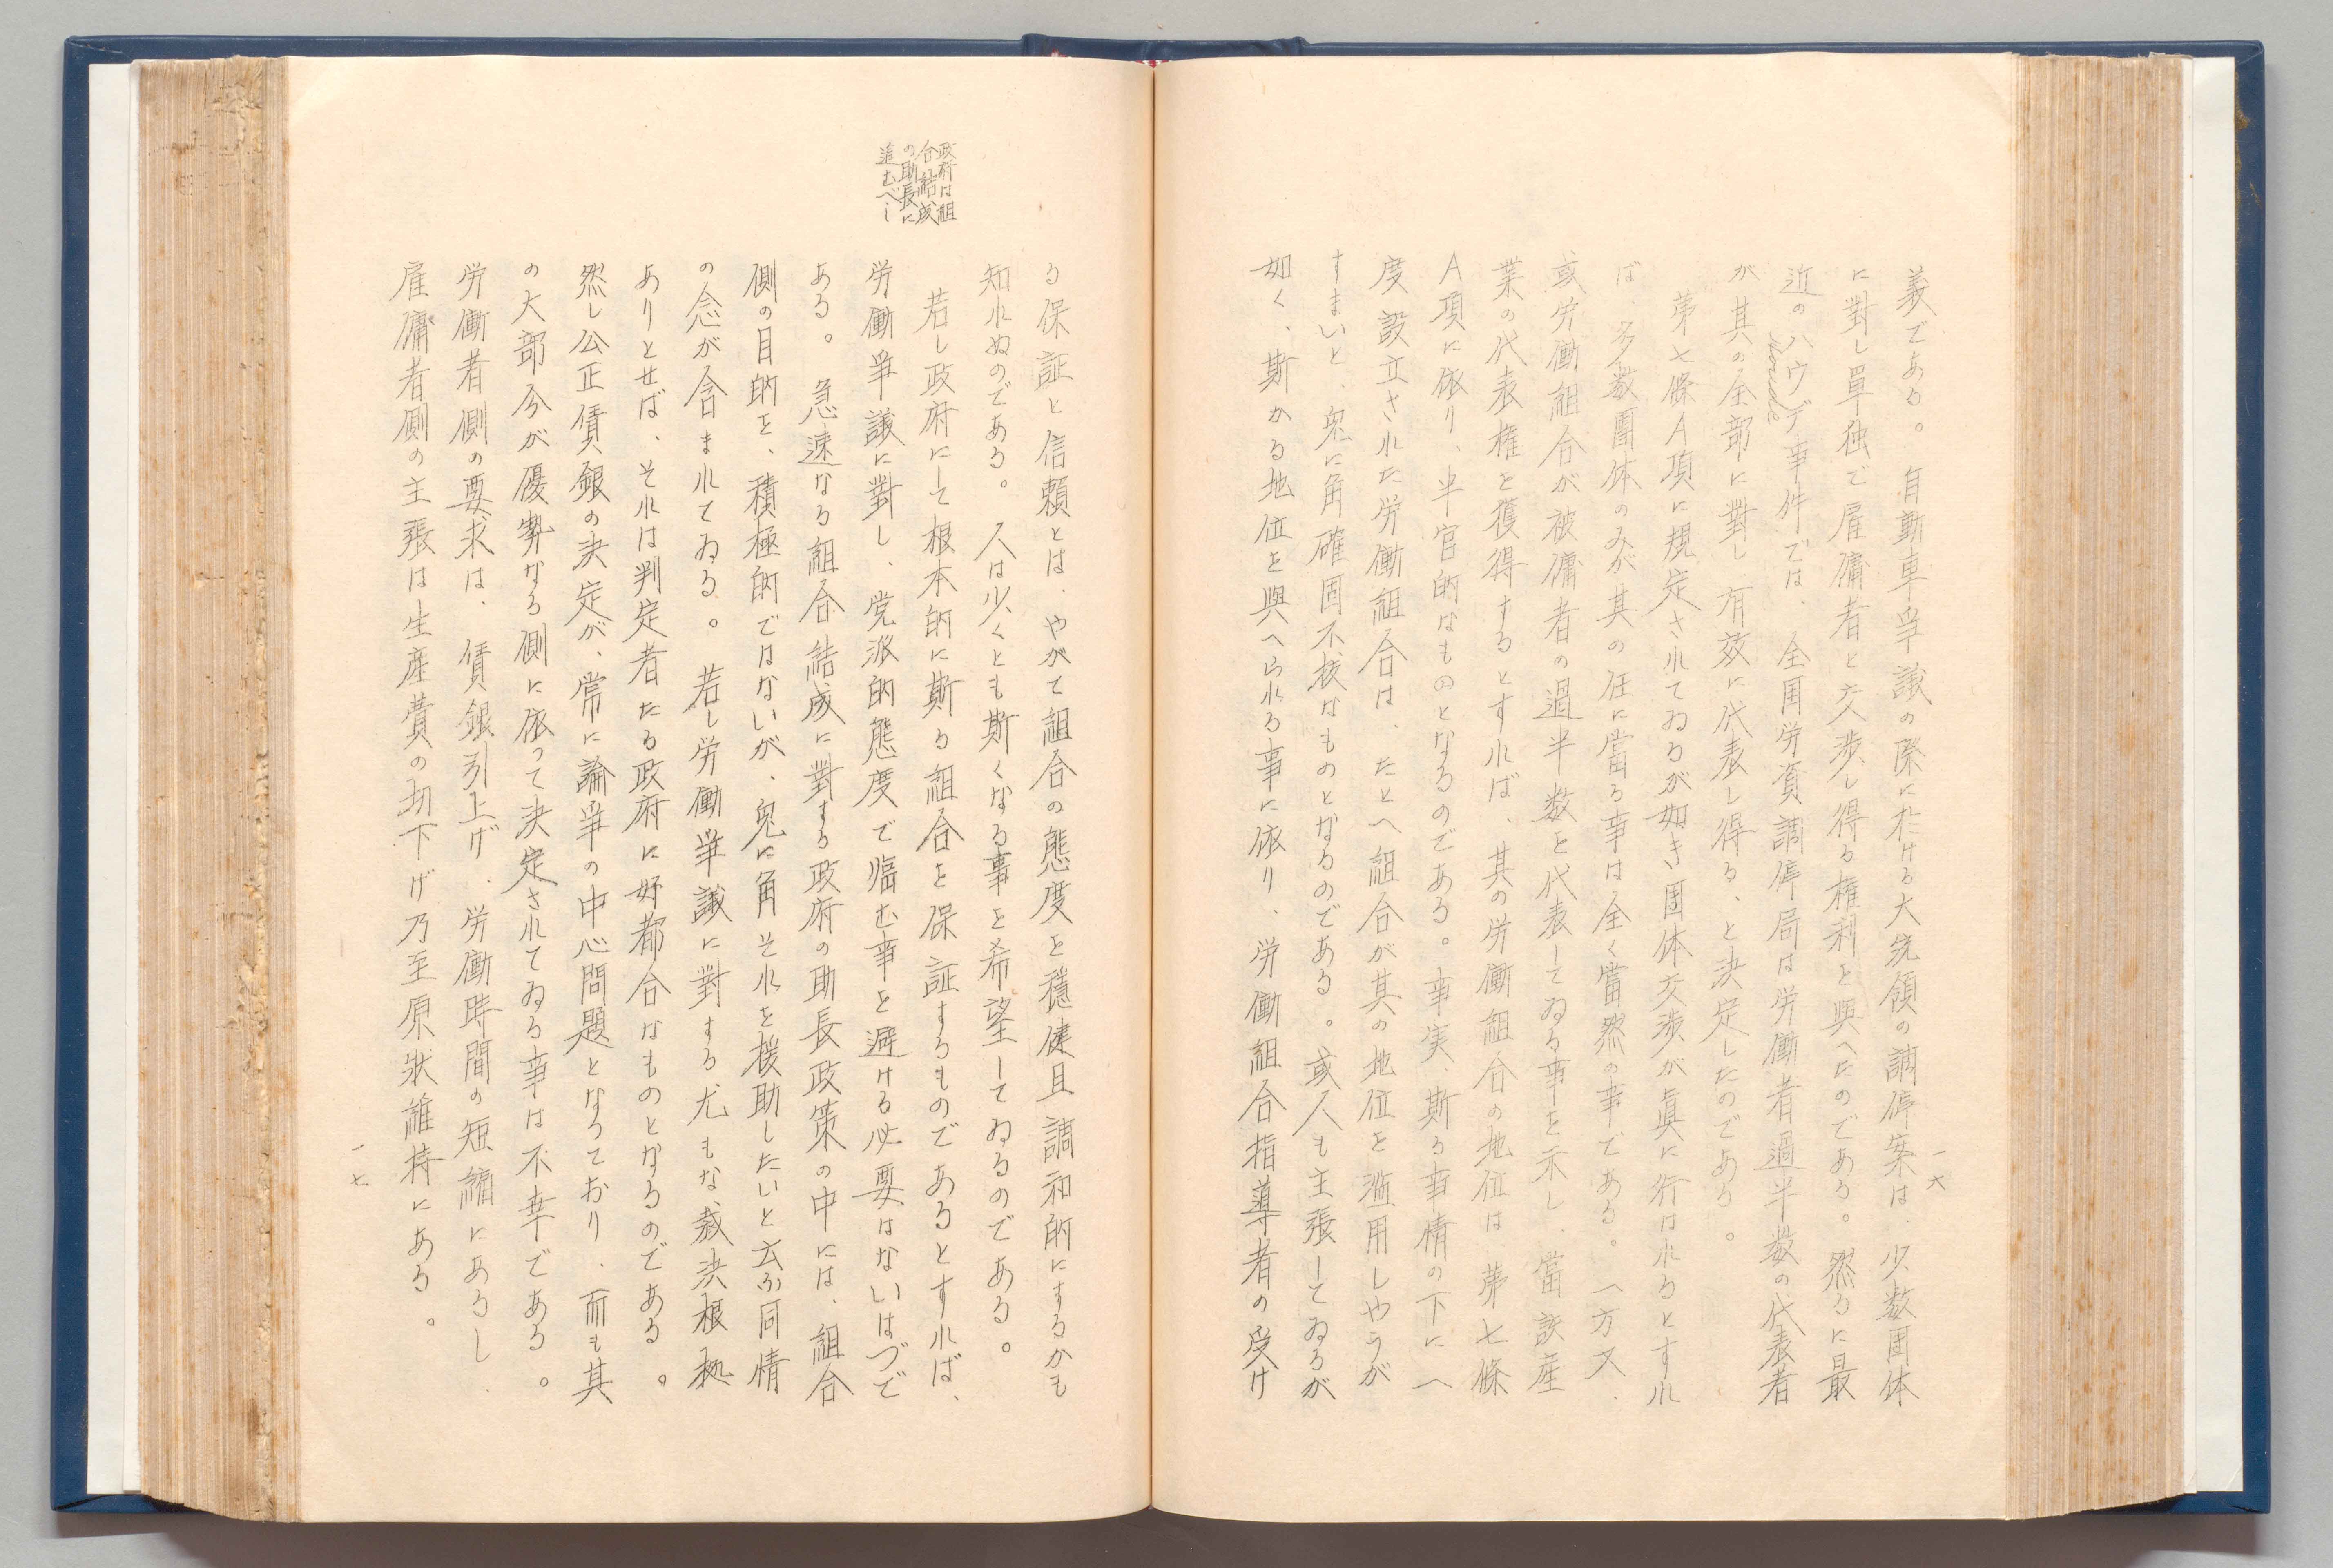 一六
義である。自動車爭議の際に於ける大統領の調停案は、少数団体
に對し単独で雇傭者と交渉し得る権利を與へたのである。然るに最
近のハウデ事件では、全国労資調停局は労働者過半数の代表者
Houde
が其の全部に對し有效に代表し得る、と決定したのである。
第七條A項に規定されてゐるが如き団体交渉が眞に行はれるとすれ
ば、多数團体のみが其の任に當る事は全く當然の事である。一方又、
或労働組合が被傭者の過半数を代表してゐる事を示し、當該産
業の代表権を獲得するとすれば、其の労働組合の地位は、第七條
A項に依り、半官的なものとなるのである。事実、斯る事情の下に一
度設立された労働組合は、たとへ組合が其の地位を濫用しやうが
すまいと、兎に角確固不抜なものとなるのである。或人も主張してゐるが
如く、斯かる地位を與へられる事に依り、労働組合指導者の受け
る保証と信頼とは、やがて組合の態度を穏健且調和的にするかも
知れぬのである。人は少くとも斯くなる事を希望してゐるのである。
政府は組
合結成
の助長に
進むべし
若し政府にして根本的に斯る組合を保証するものであるとすれば、
労働爭議に對し、党派的態度で臨む事を避ける必要はないはづで
ある。急速なる組合結成に對する政府の助長政策の中には、組合
側の目的を、積極的ではないが、兎に角それを援助したいと云ふ同情
の念が含まれてゐる。若し労働爭議に對する尤もな裁決根拠
ありとせば、それは判定者たる政府に好都合なものとなるのである。
然し公正賃銀の決定が、常に論爭の中心問題となつており、而も其
の大部分が優勢なる側に依つて決定されてゐる事は不幸である。
労働者側の要求は、賃銀引上げ、労働時間の短縮にあるし、
雇傭者側の主張は生産費の切下げ乃至原状維持にある。
一七